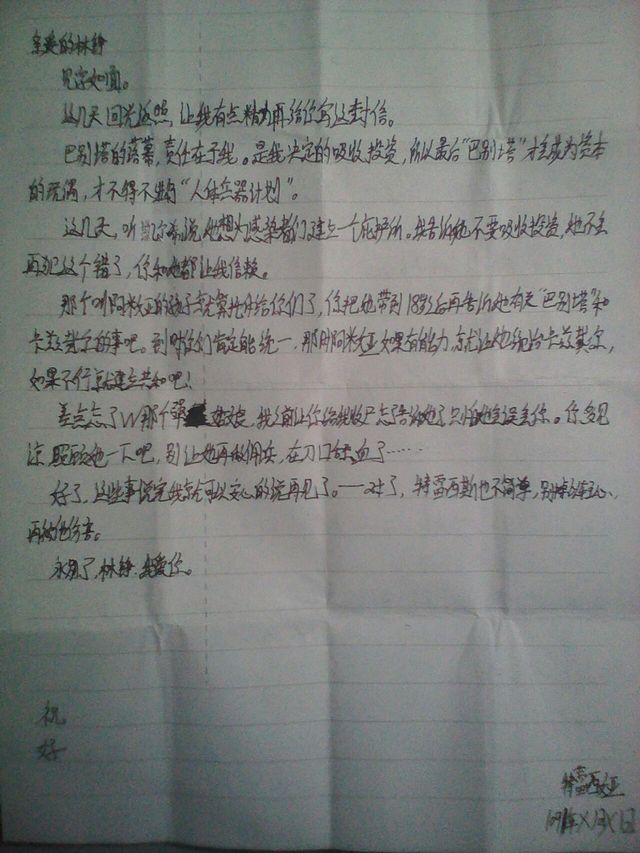 亲爱的林静
见字如面。
这几天回光返照，让我有点精力再给你写这封信。
巴别塔的落幕，责任在于我。是我决定的吸收投资，所以最后“巴别塔”才会成为资本
的玩偶，才不得不进行“人体兵器计划”。
这几天，听凯尔希说她想为感染者们建立一个庇护所。我告诉她不要吸收投资，她不会
再犯这个错了，你和她都让我信赖。
那个叫阿米娅的孩子就算托付给你们了，你把她带到18岁后再告诉她有关“巴别塔”和
卡兹戴尔的事吧。到时你们肯定能统一，那时阿米娅如果有能力，就让她统治卡兹戴尔，
如果不行就建立共和吧！
差点忘了W那个 姑娘，我之前让你给我收尸忘了告诉她了，只怕她会误会你。你多见
谅，照顾她一下吧，别让她再做佣兵，在刀口舔血了……
好了，这些事说完我就可以安心的说再见了。——对了，特雷西斯也不简单，别掉以轻心、
再被他伤害。
永别了，林静，我爱你。
祝
好
特雷西娅
1091年X月X日